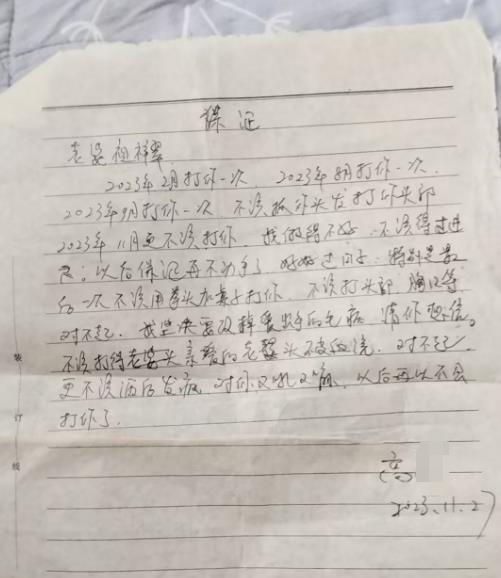 保证
老婆祖祥翠
2023年2月打你一次 2023年8月打你一次
2023年9月打你一次 不该抓你头发打你头部
2023年11月更不该打你 我做得不好 不该得过进
尺；以后保证再不动手了 好好过日子 特别是最
后一次 不该用拳头 打你 不该打头部 胸口等
对不起 我坚决要改掉 出手的毛病 请你 信。
不该打得老婆头 老婆头 对不起
更不该酒后发疯 对你又吼又 以后再以不会
打你了
装
订
线
高
2023.11.27